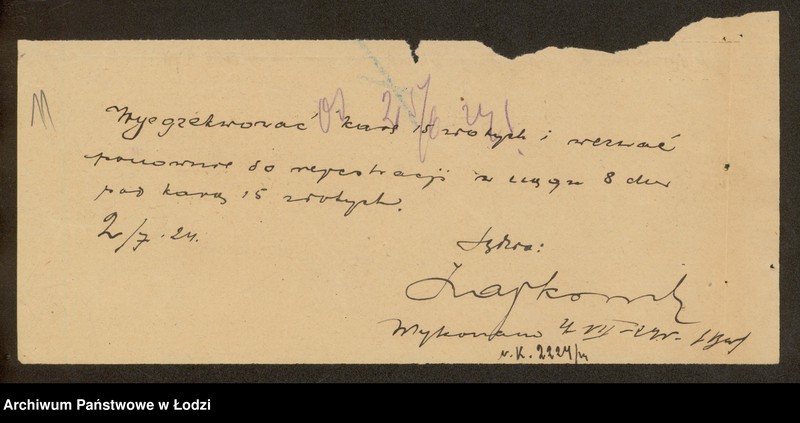 Wyegzekwować karę 15 złotych i wezwać
ponownie do rejestracji w ciągu 8 dni
pod karą 15 złotych.
2/7.24.
Sędzia:
Wykonano 4 VII-24r.
N.K. 2224/24
Archiwum Państwowe w Łodzi